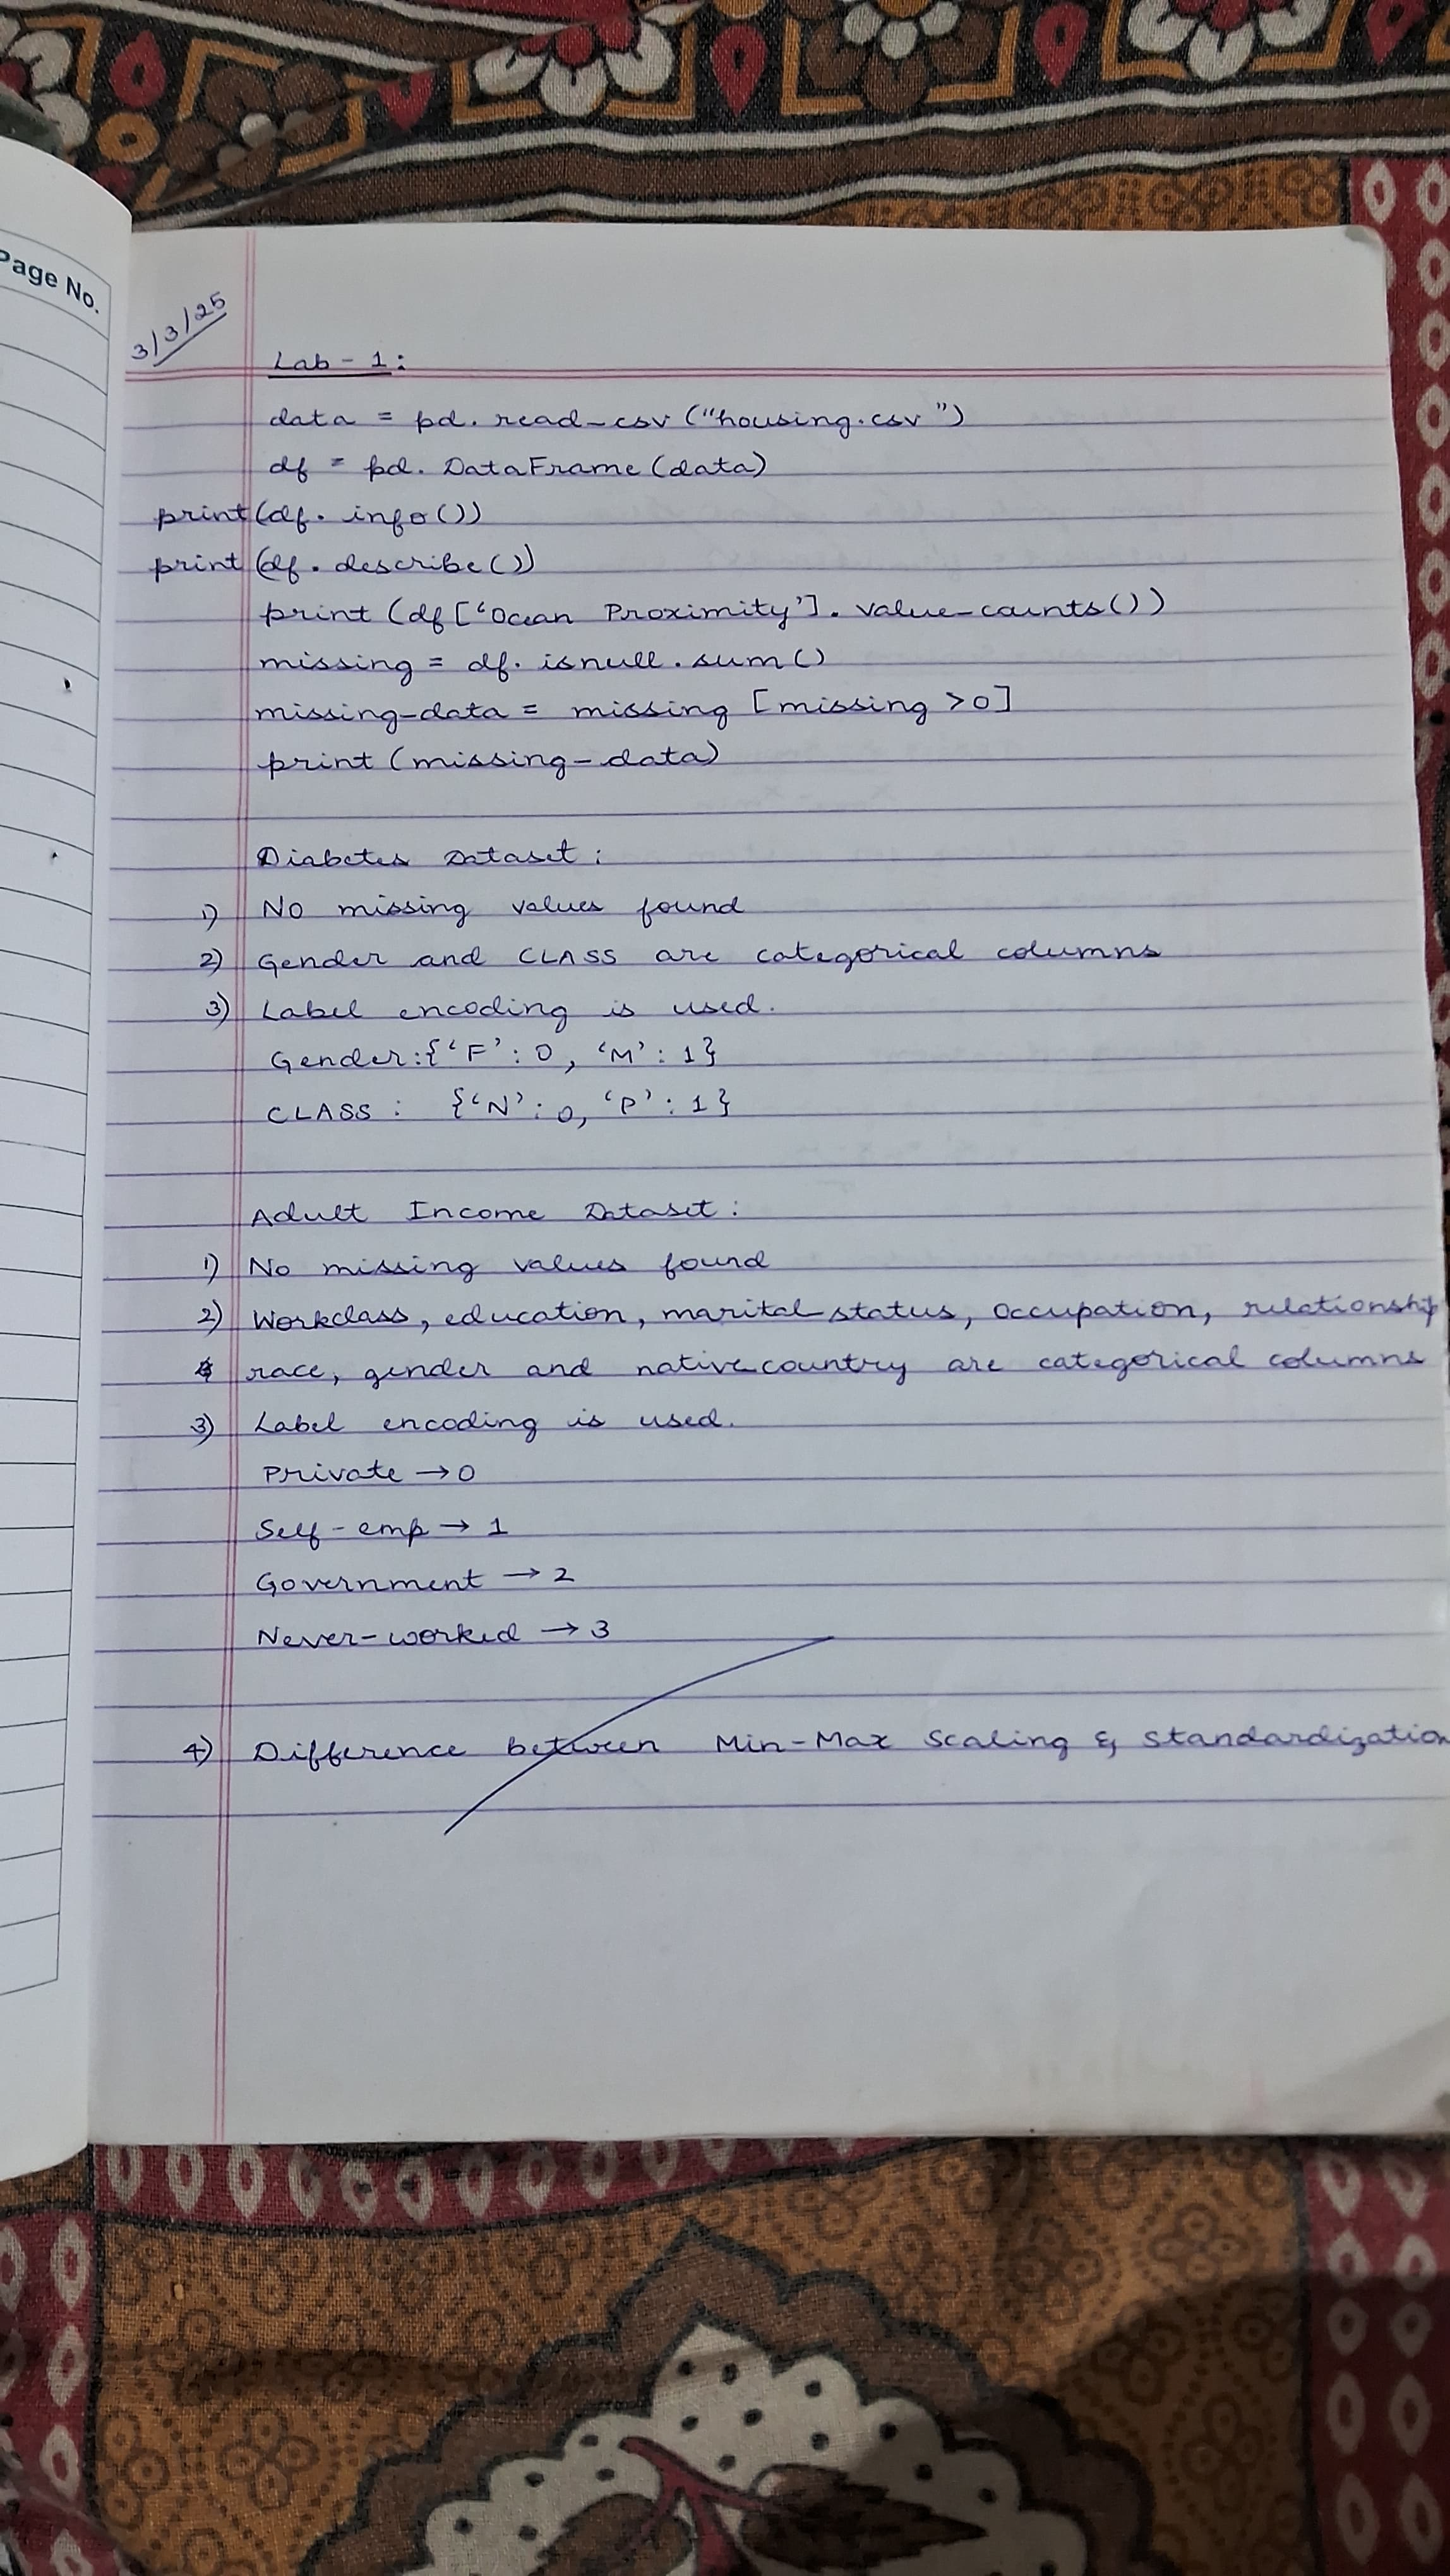 Page No.
3/3/25
Lab - 1:
data = pd. read_csv ("housing.csv")
df = pd. DataFrame (data)
print (df. info ())
print (df. describe ())
print (df ['Ocean Proximity']. value_counts())
missing = df. isnull . sum ()
missing-data = missing [missing > 0]
print (missing-data)
Diabetes Dataset :
1) No missing values found
2) Gender and CLASS are categorical columns
3) Label encoding is used.
Gender:{'F' : 0, 'M' : 1}
CLASS : {'N' : 0, 'P' : 1}
Adult Income Dataset :
1) No missing values found
2) Workclass, education, marital-status, occupation, relationship
race, gender and native country are categorical columns
3) Label encoding is used.
Private → 0
Self - emp → 1
Government → 2
Never-worked → 3
4) Difference between Min-Max Scaling & Standardization